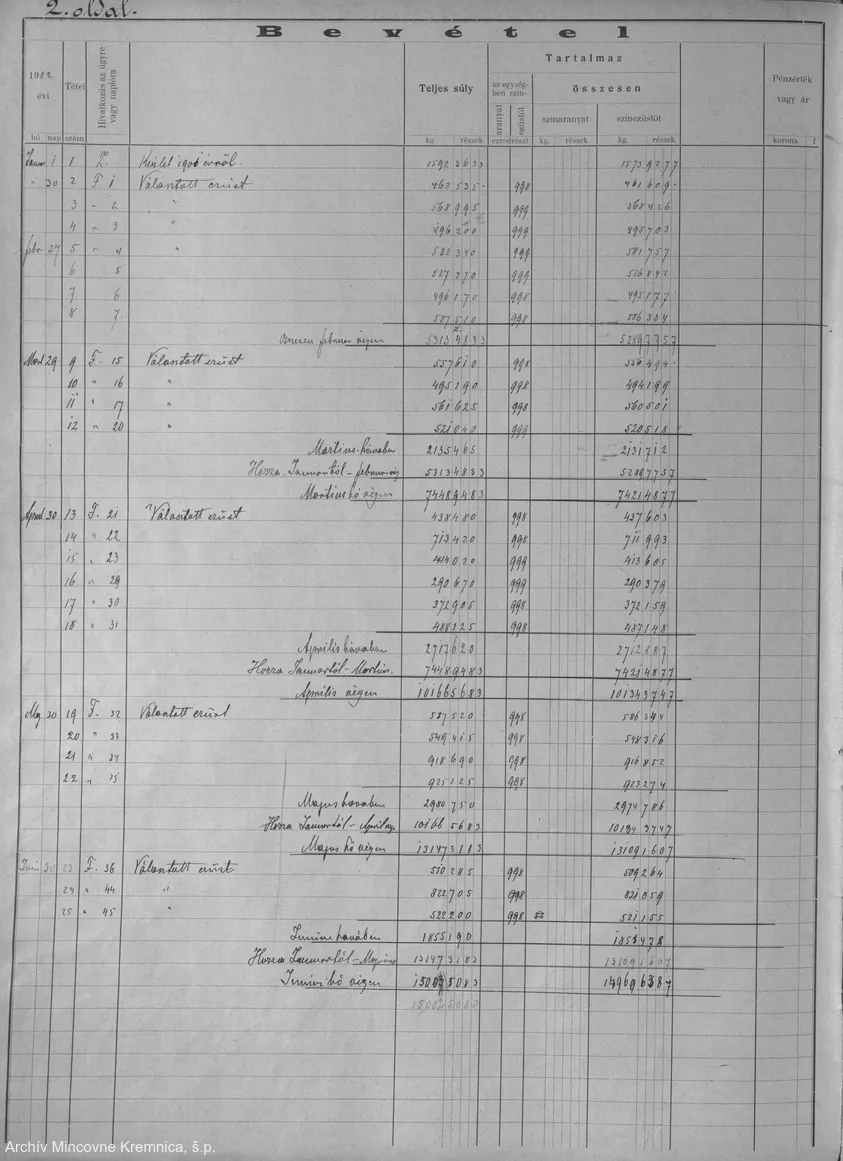 2. oldal.
Bevétel
1902. évi
Tétel
Hivatkozás az ügyre vagy naplóra
Teljes súly
Tartalmaz
az egység-ben szin-
összesen
aranyat
ezüstöt
szinaranyat
szinezüstöt
Pénzérték vagy ár
hó nap szám kg részek ezredrészt kg. részek kg. részek korona f
Januar 1 1 Készlet 1901 évről. 1592 3633 1573 9277
" 30 2 F 1 Válantott ezüst 462 535 - 998 461 609 -
3 " 2 " 568 995 999 568 426
4 " 3 " 496 200 999 495 703
febr 27 5 " 4 " 582 340 999 581 757
6 5 527 370 999 526 842
7 6 496 170 998 495 177
8 7. 587 510 998 586 334
Összesen februar végen 5313 4833 5289 7757
Mart 29 9 F. 15 Válantott ezüst 557 610 998 556 494 -
10 " 16 " 495 190 998 494 199
11 " 17 " 561 625 998 560 501
12 " 20 " 521 040 999 520 518
Martius havában 2135 465 2131 712
Hozza Januartól - februar vég 5313 4833 5289 7757
Martius hó végen 7448 9483 7421 4877
April 30 13 F. 21 Válantott ezüst 438 480 998 437 603
14 " 22 713 420 998 711 993
15 " 23 414 020 999 413 605
16 " 29 290 670 999 290 379
17 " 30 372 905 998 372 159
18 " 31 488 125 998 487 148
Április havában 2717 620 2712 887
Hozza Januartól - Martius. 7448 9483 7421 4877
Április végen 10166 5683 10134 3747
Maj 30 19 F. 32 Válantott ezüst 587 520 998 586 344
20 " 33 549 415 998 548 316
21 " 34 918 690 998 916 852
22 " 35 925 125 998 923 274
Majus havában 2980 750 2974 786
Hozza Januartól - April vég 10166 5683 10134 3747
Majus hó végen 13147 3183 13109 1607
Juni 30 23 F. 36 Válantott ezüst 510 285 998 509 264
24 " 44 " 822 705 998 821 059
25 " 45 " 522 200 998 521 155
Junius havában 1855 190 1851 478
Hozza Januartól - Majus 13147 3183 13109 1607
Juniusi hó végen 15002 5083 14969 6387
15002 5083
Archív Mincovne Kremnica, š.p.